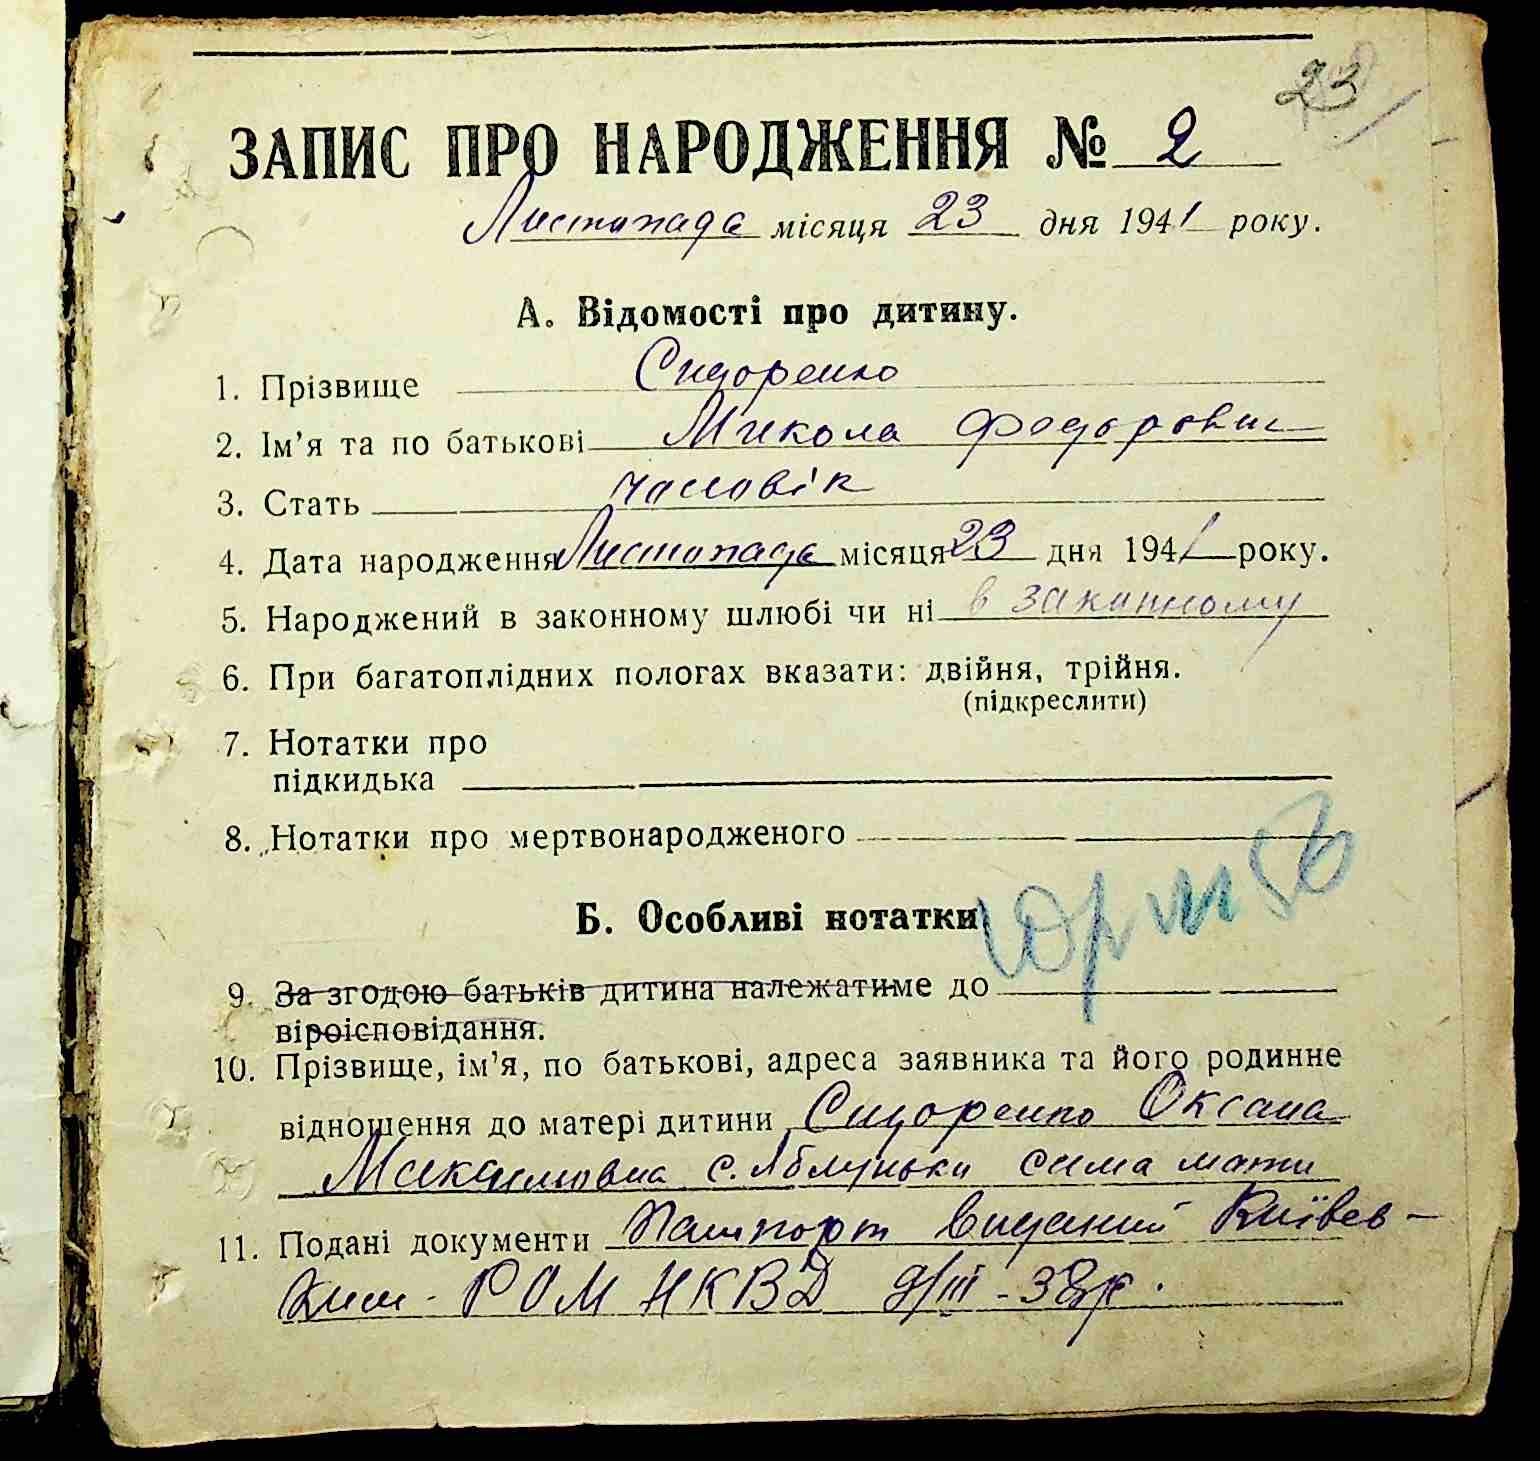 23
ЗАПИС ПРО НАРОДЖЕННЯ № 2
Листопада місяця 23 дня 1941 року.
А. Відомості про дитину.
1. Прізвище Сидоренко
2. Ім’я та по батькові Микола Федорович
3. Стать чоловік
4. Дата народження Листопада місяця 23 дня 1941 року.
5. Народжений в законному шлюбі чи ні в законному
6. При багатоплідних пологах вказати: двійня, трійня.
(підкреслити)
7. Нотатки про
підкидька
8. Нотатки про мертвонародженого
Б. Особливі нотатки
9. За згодою батьків дитина належатиме до
віроісповідання.
10. Прізвище, ім’я, по батькові, адреса заявника та його родинне
відношення до матері дитини Сидоренко Оксана
Максимовна с. Яблуньки сама мати
11. Подані документи Пашпорт виданий Київсь-
ким РОМ НКВД 9/III-38р.